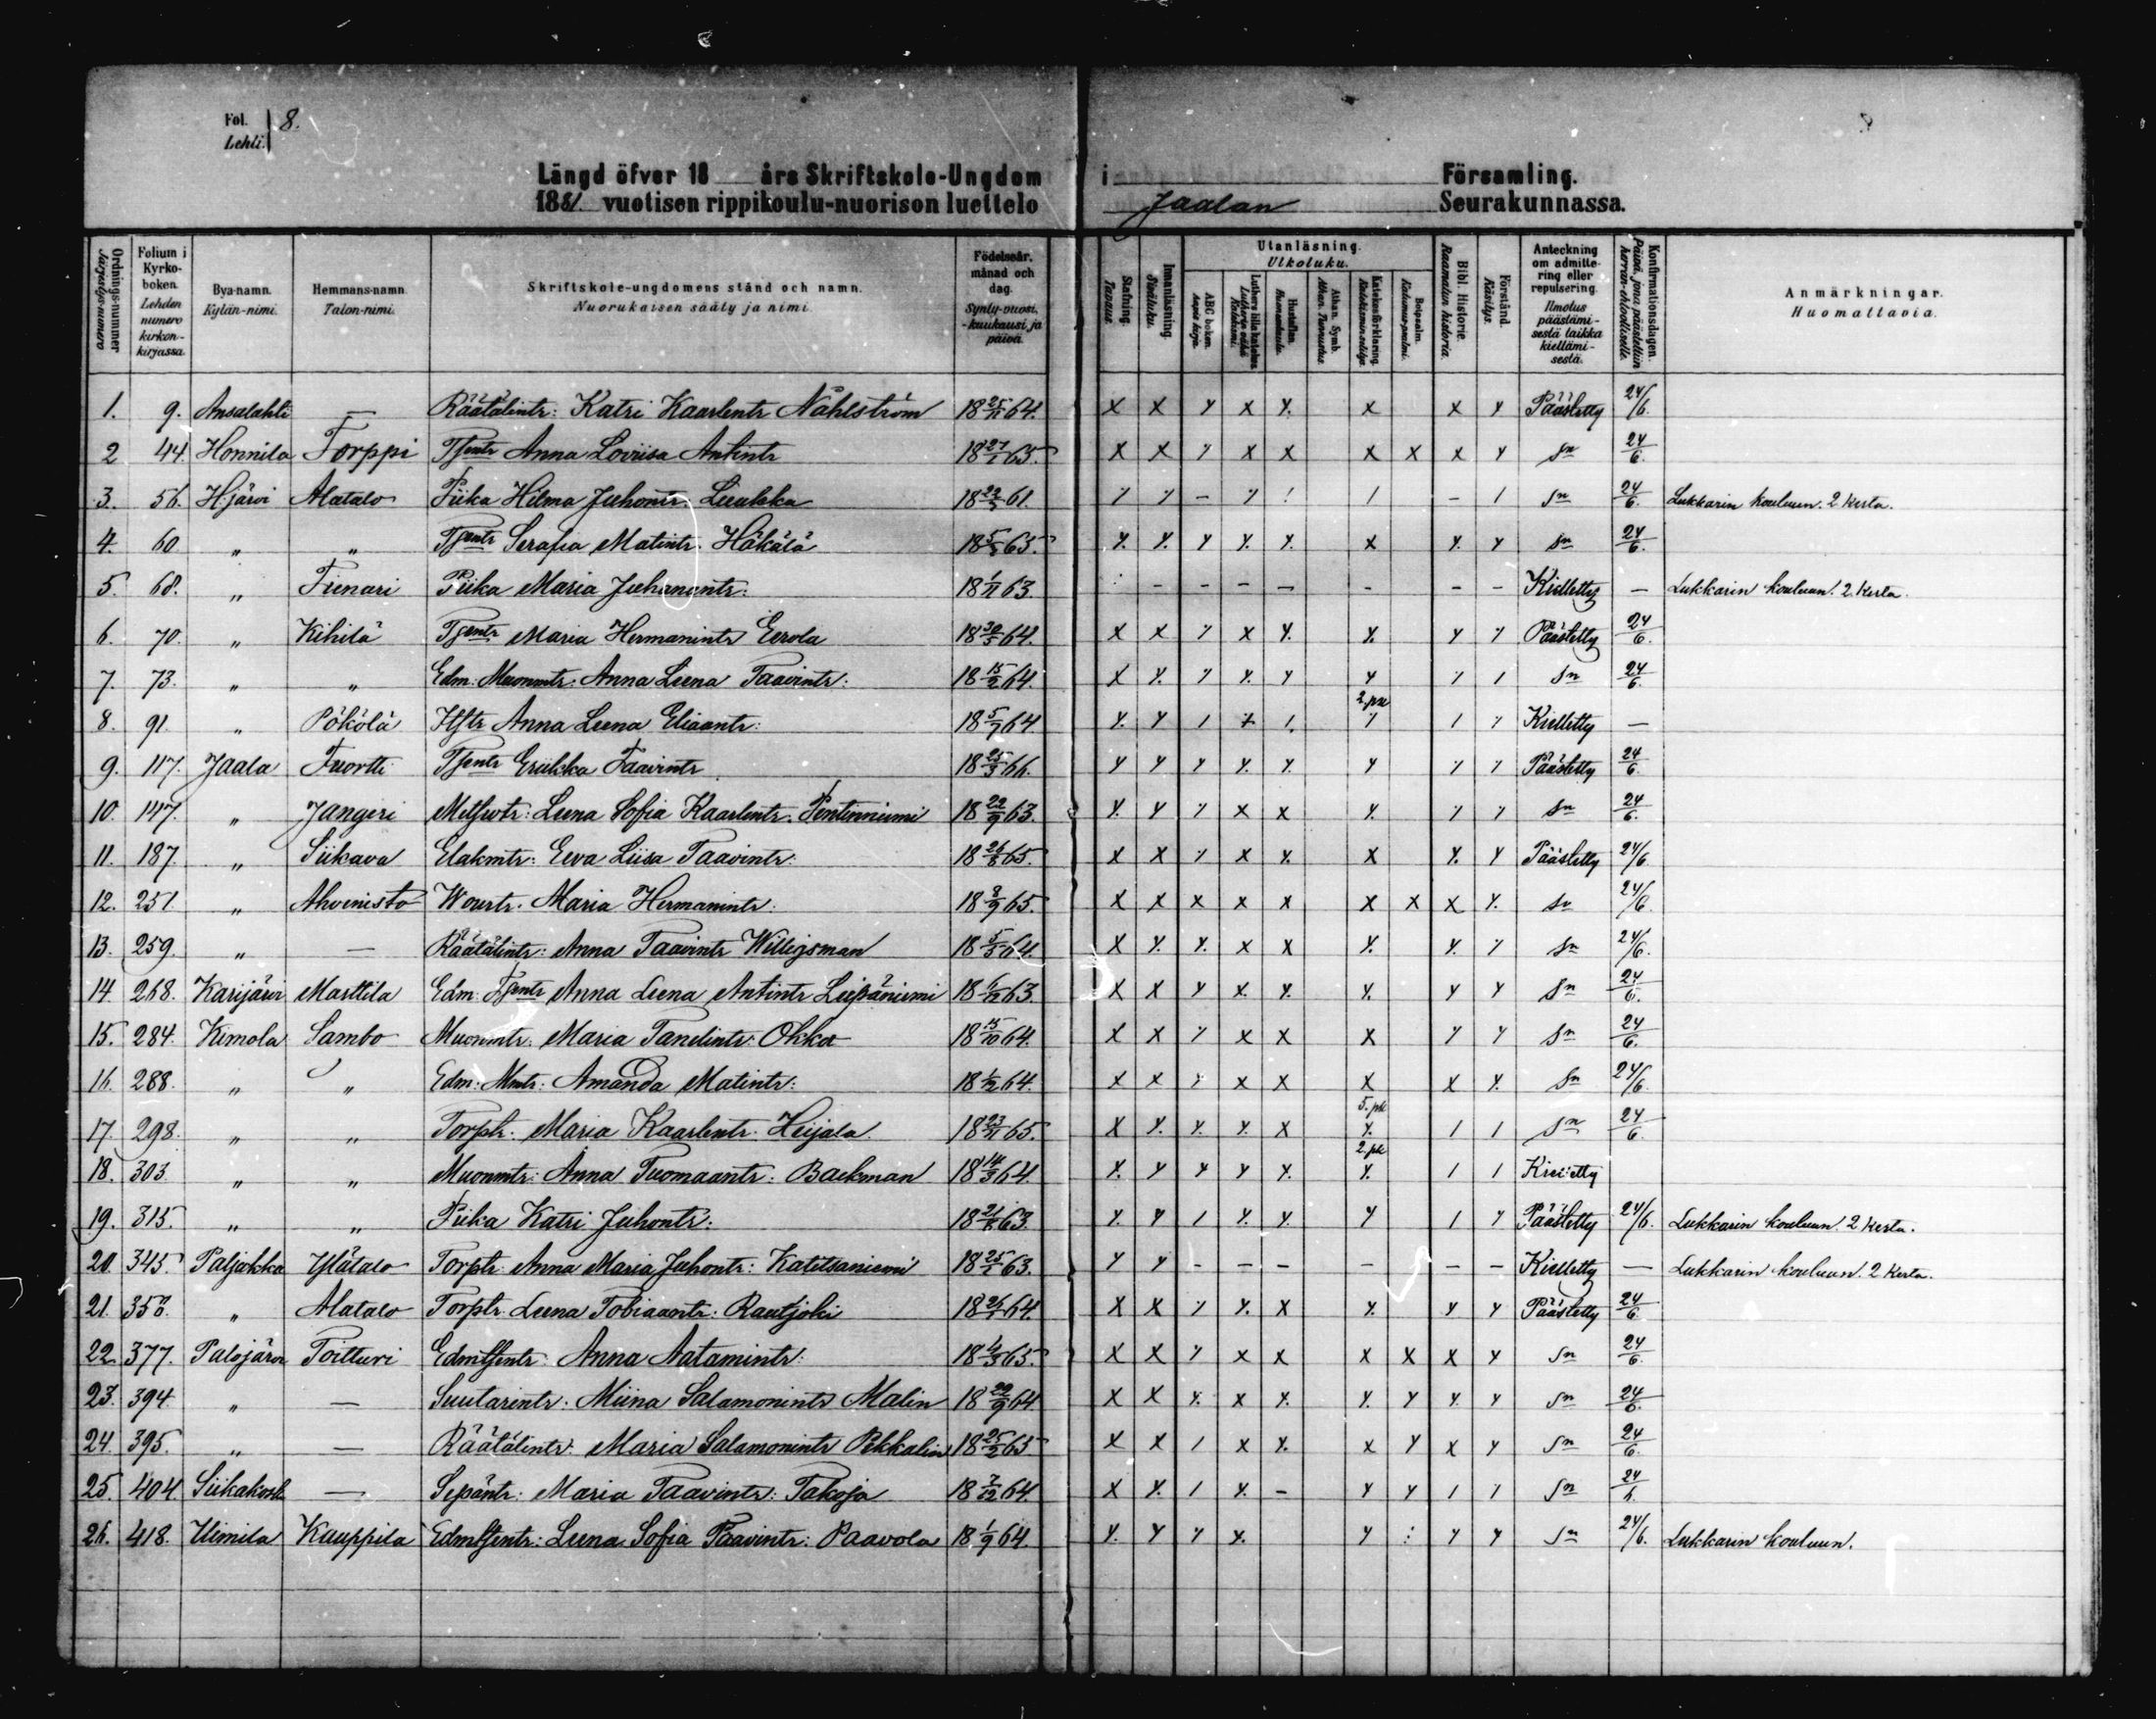 Fol. 8.
Lehti.
Längd öfver 18 års Skriftskole-Ungdom i Församling.
1881 vuotisen rippikoulu-nuorison luettelo Jaalan Seurakunnassa.
Ordnings-nummer Järjestys-numero
Folium i Kyrko-boken. Lehden numero kirkon-kirjassa.
Bya-namn. Kylän-nimi.
Hemmans-namn. Talon-nimi.
Skriftskole-ungdomens stånd och namn. Nuorukaisen sääty ja nimi.
Födelseår, månad och dag. Synty-vuosi, -kuukausi ja päivä.
Stafning. Tavaus.
Innanläsning. Sisäluku.
Utanläsning. Ulkoluku.
ABC boken. Aapis kirja.
Luthers lilla kateches.
Hustaflan. Huoneentaulu.
Athan. Symb. Athan. Tunnustus.
Katekesförklaring. Katekismin selitys.
Botpsalm. Katumus-psalmi.
Bibl. Historie. Raamatun historia.
Förstånd. Käsitys.
Anteckning om admitte-ring eller repulsering. Ilmotus päästämi-sestä taikka kieltämi-sestä.
Konfirmationsdagen. Päivä, jona päästettiin herran-ehtoolliselle.
Anmärkningar. Huomattavia.
1. 9. Ansalahti — Räätälintr: Katri Kaarlentr Nahlström 18 25/11 64. X X Y X Y. X X Y Päästetty 24/6.
2 44. Honnila Torppi Tjentr Anna Loviisa Antintr 18 27/1 65. X X Y X X X X X Y sn 24/6.
3. 56. Hjärvi Alatalo Piika Hilma Juhontr. 18 22/5 61. sn 24/6. Lukkarin kouluun. 2 kerta.
4. 60 " " Tjentr Serafia Matintr. Häkälä 18 5/5 65. Y. Y. Y Y. Y. X Y. Y sn 24/6.
5. 68. " Piika Maria Juhanantr: 18 1/11 63. — — — — — — — Kielletty — Lukkarin kouluun. 2 kerta.
6. 70. " Kihilä Tjentr Maria Hermanintr Eerola 18 30/5 64. X X Y X Y. Y. Y Y Päästetty 24/6.
7. 73. " " Edm. Muonmtr. Anna Leena Taavintr: 18 15/2 64. X Y. Y Y. Y Y Y 1 sn 24/6.
8. 91. " Pökölä Anna Leena Eliaantr: 18 5/7 64. 2. pk Kielletty —
9. 117. Jaala Tuortti Tjentr Erikka Taavintr 18 25/3 66. Y Y Y Y. Y. Y Y Y Päästetty 24/6.
10. 147. " Jangeri Leena Sofia Kaarlentr. Pentinniemi 18 22/9 63. Y. Y Y X X Y. Y Y sn 24/6.
11. 187. " Siikava Elakmtr: Eeva Liisa Taavintr: 18 26/8 65. X X Y X Y. X Y. Y Päästetty 24/6.
12. 251. " Ahvenisto Wourtr. Maria Hermanintr. 18 8/9 65. X X X X X X X X Y. sn 24/6.
13. 259. " — Räätälintr: Anna Taavintr Willigsman 18 5/5 64. X Y. Y. X X Y. Y. Y sn 24/6.
14. 268. Karijärvi Marttila Edm. Tjentr Anna Leena Antintr Leepäniemi 18 6/12 63. X X Y X. Y. Y. Y Y sn 24/6.
15. 284. Kimola Sambo Muonmtr. Maria Tanelintr. Okka 18 15/10 64. X X Y X X X Y Y sn 24/6.
16. 288. " " Edm. Mmtr: Amanda Matintr: 18 1/12 64. X X Y X X X X Y. sn 24/6.
17. 298. " " Torptr. Maria Kaarlentr. Heijala 18 23/11 65. X Y. Y. Y. X 5. pk Y. 1 1 sn 24/6.
18. 303. " " Muonmtr: Anna Tuomaantr: Backman 18 14/3 64. Y. Y Y Y Y. 2. pk Y. 1 1
19. 315. " " Piika Katri Juhontr: 18 21/8 63. Y. Y 1 Y. Y. Y 1 Y Päästetty 24/6. Lukkarin kouluun. 2 kerta.
20. 345. Paljakka Ylätalo Torptr. Anna Maria Juhontr: Katitsaniemi 18 25/1 63. Y Y — — — — — — Kielletty — Lukkarin kouluun. 2 kerta.
21. 358. " Alatalo Torptr. Leena Tobiaantr: Rautjoki 18 26/1 64. X X Y Y. X Y. Y Y Päästetty 24/6.
22. 377. Palojärvi Toitturi Edmtjentr: Anna Aatamintr: 18 1/3 65. X X Y X X X X X Y sn 24/6.
23. 394. " — Suutarintr: Miina Salamonintr Malin 18 22/9 64. X X Y. X Y. Y. Y Y. Y sn 24/6.
24. 395. " — Räätälintr: Maria Salamonintr Pekkalin 18 25/2 65. X X 1 X Y. X Y X Y sn 24/6.
25. 404. Siikakosk. — Sepäntr: Maria Taavintr: Takoja 18 7/12 64. X Y. 1 Y. — Y Y 1 Y sn 24/6.
26. 418. Uimila Kauppila Edmtjentr: Leena Sofia Taavintr: Paavola 18 1/9 64. Y. Y Y Y. Y : Y Y sn 24/6. Lukkarin kouluun.